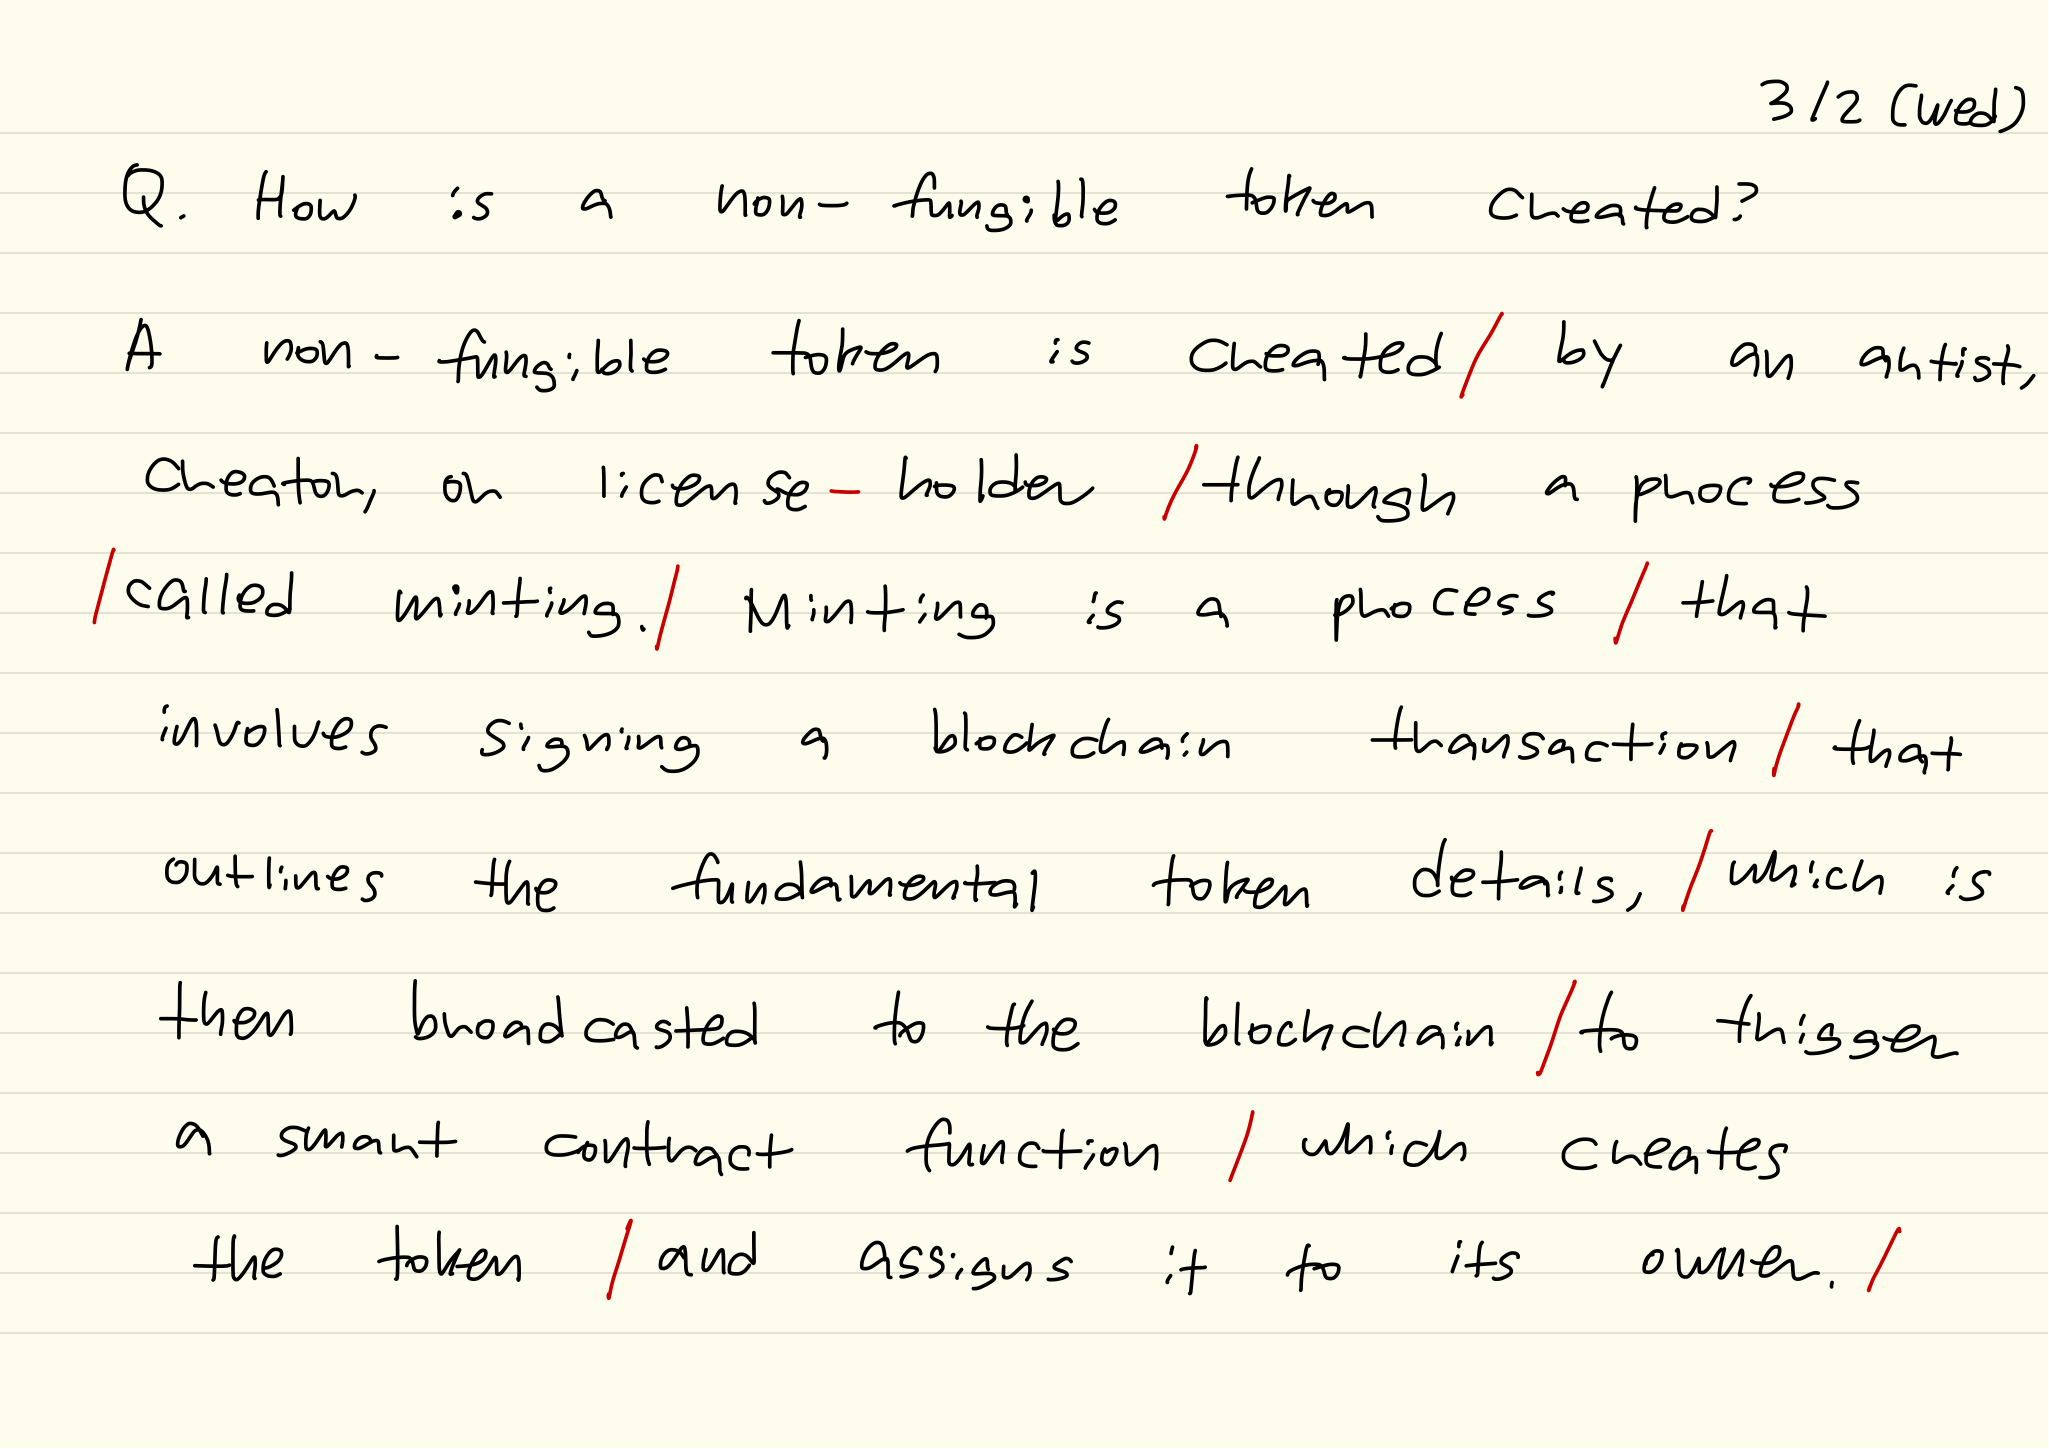 3/2 (Wed)
Q. How is a non-fungible token created?
A non-fungible token is created / by an artist,
creator, or license-holder / through a process
/ called minting. / Minting is a process / that
involves signing a blockchain transaction / that
outlines the fundamental token details, / which is
then broadcasted to the blockchain / to trigger
a smart contract function / which creates
the token / and assigns it to its owner. /